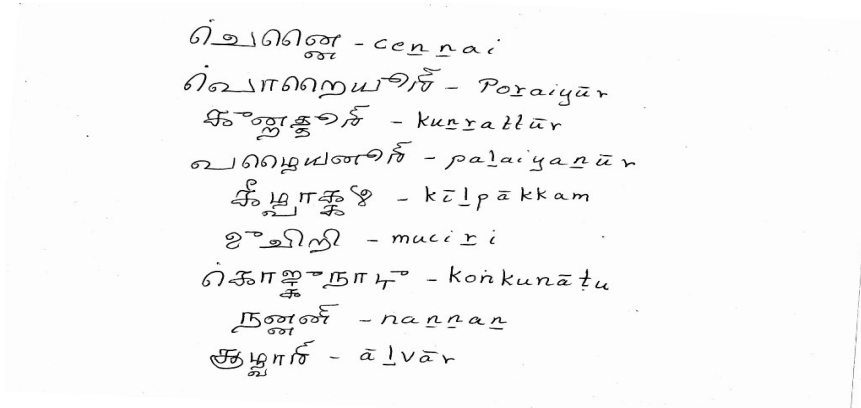 சென்னை - ceṉṉai
பொறையூர் - Poṟaiyūr
குன்றத்தூர் - kuṉṟattūr
பழையனூர் - paḻaiyaṉūr
கீழ்பாக்கம் - kīḻpākkam
முசிறி - muciṟi
கொங்குநாடு - koṅkunāṭu
நன்னன் - naṉṉaṉ
ஆழ்வார் - āḻvār